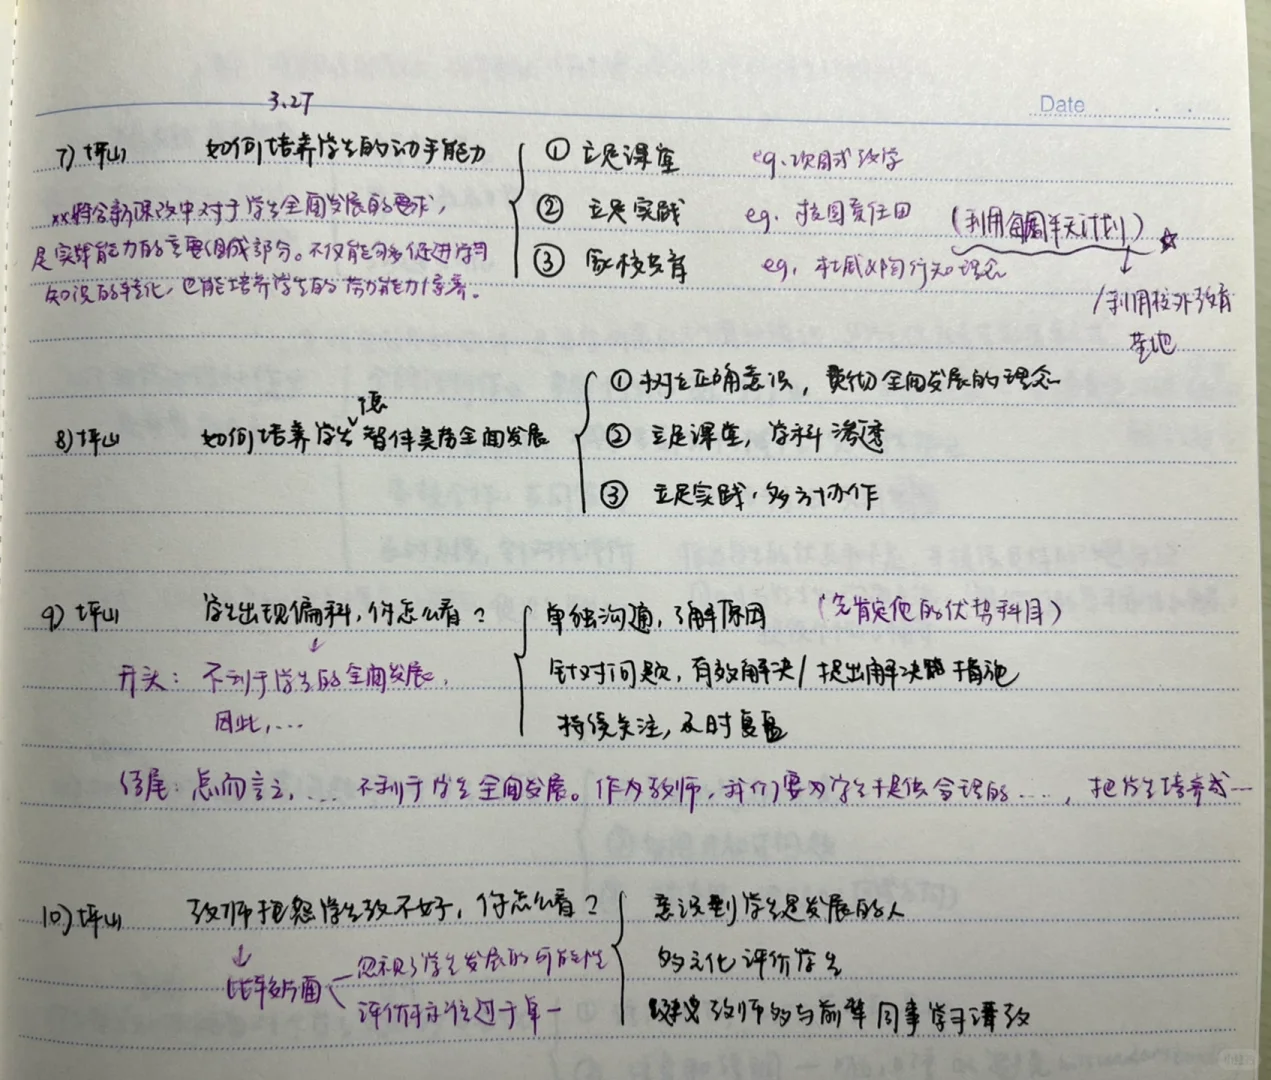 3.27
Date
7) 坪山 如何培养学生的动手能力
① 立足课堂 eg. 项目式教学
② 立足实践 eg. 校园责任田 (利用每周半天计划) ☆
③ 家校共育 eg. 杜威 陶行知理念
/利用校外教育
基地
xx符合新课改中对于学生全面发展的要求,
是实践能力的重要组成部分。不仅能够促进学习
知识的转化, 也能培养学生的劳动能力/素养。
8) 坪山 如何培养学生德智体美劳全面发展
① 树立正确意识, 贯彻全面发展的理念
② 立足课堂, 学科渗透
③ 立足实践, 多方协作
9) 坪山 学生出现偏科, 你怎么看?
单独沟通, 了解原因 (先肯定他的优势科目)
针对问题, 有效解决/提出解决措施
持续关注, 及时复盘
开头: 不利于学生的全面发展,
因此, ...
结尾: 总而言之, ... 不利于学生全面发展。作为教师, 我们要为学生提供合理的..., 把学生培养成...
10) 坪山 教师抱怨学生教不好, 你怎么看?
意识到学生是发展的人
多元化评价学生
教师多与前辈同事学习请教
比较片面
忽视了学生发展的可能性
评价标准过于单一